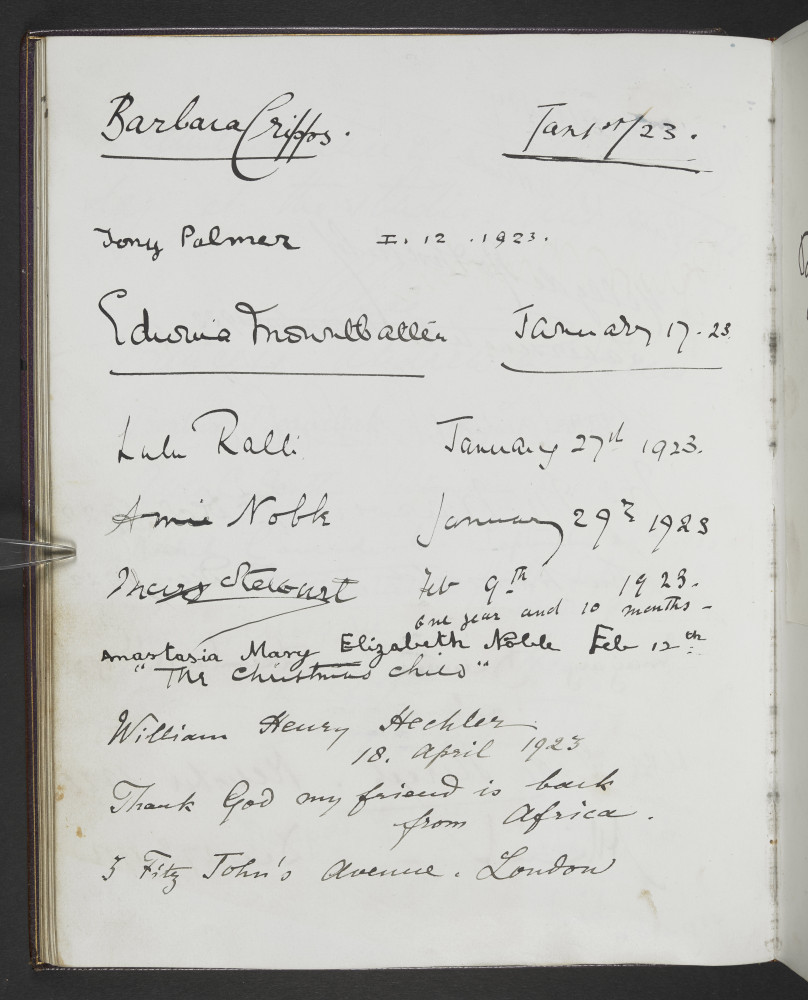 Barbara Cripps. Jan 1st/23.
Tony Palmer I. 12 .1923.
Edwina Mountbatten January 17-23
Lulu Ralli January 27th 1923.
Amie Noble January 29 1923
Mary Stewart Feb 9th 1923.
one year and 10 months -
Anastasia Mary Elizabeth Noble Feb 12th
"The Christmas Child"
William Henry Hechler
18. April 1923
Thank God my friend is back
from Africa.
3 Fitz John's Avenue. London